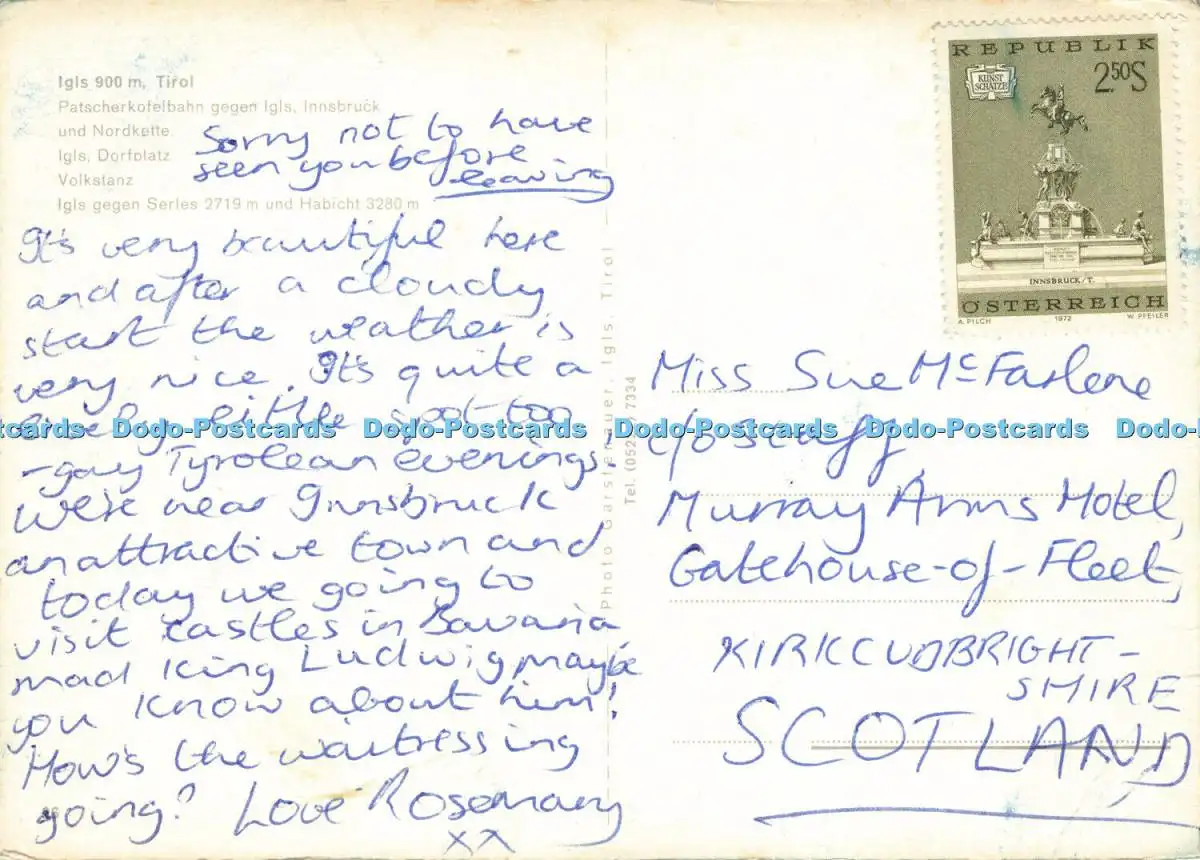 Igls 900 m, Tirol
Patscherkofelbahn gegen Igls, Innsbruck
und Nordkette
Igls, Dorfplatz
Volkstanz
Igls gegen Serles 2719 m und Habicht 3280 m
Sorry not to have
seen you before
leaving
It's very beautiful here
and after a cloudy
start the weather is
very nice. It's quite a
lively little spot too
-gay Tyrolean evenings!
We're near Innsbruck
an attractive town and
today we going to
visit castles in Bavaria
mad King Ludwig maybe
you know about him!
How's the waitressing
going? Love Rosemary
xx
Photo Gerstenauer, Igls, Tirol
Tel. (052 7334
REPUBLIK
KUNST
SCHÄTZE
2.50S
INNSBRUCK/T.
ÖSTERREICH
A. PILCH 1972 W. PFEILER
Miss Sue McFarlene
c/o Staff,
Murray Arms Hotel,
Gatehouse-of-Fleet,
KIRKCUDBRIGHT-
SHIRE
SCOTLAND
Dodo-Postcards Dodo-Postcards Dodo-Postcards Dodo-Postcards